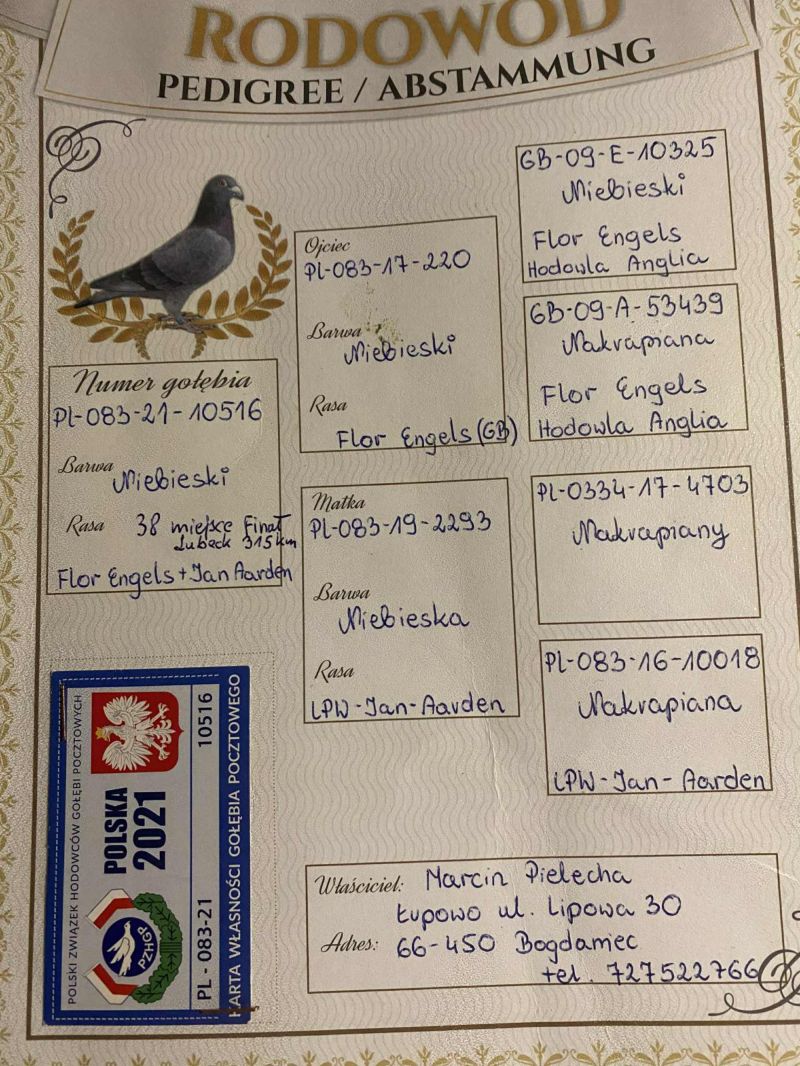 RODOWÓD
PEDIGREE / ABSTAMMUNG
Numer gołębia
PL-083-21-10516
Barwa
Niebieski
Rasa 38 miejsce Finał
Lubeck 315km
Flor Engels + Jan Aarden
Ojciec
PL-083-17-220
Barwa
Niebieski
Rasa
Flor Engels (GB)
Matka
PL-083-19-2293
Barwa
Niebieska
Rasa
LPW-Jan-Aarden
GB-09-E-10325
Niebieski
Flor Engels
Hodowla Anglia
GB-09-A-53439
Nakrapiana
Flor Engels
Hodowla Anglia
PL-0334-17-4703
Nakrapiany
PL-083-16-10018
Nakrapiana
LPW-Jan-Aarden
POLSKI ZWIĄZEK HODOWCÓW GOŁĘBI POCZTOWYCH
POLSKA
2021
PZHGP
PL - 083-21 10516
KARTA WŁASNOŚCI GOŁĘBIA POCZTOWEGO
Właściciel: Marcin Pielecha
Łupowo ul. Lipowa 30
Adres: 66-450 Bogdaniec
tel. 727522766